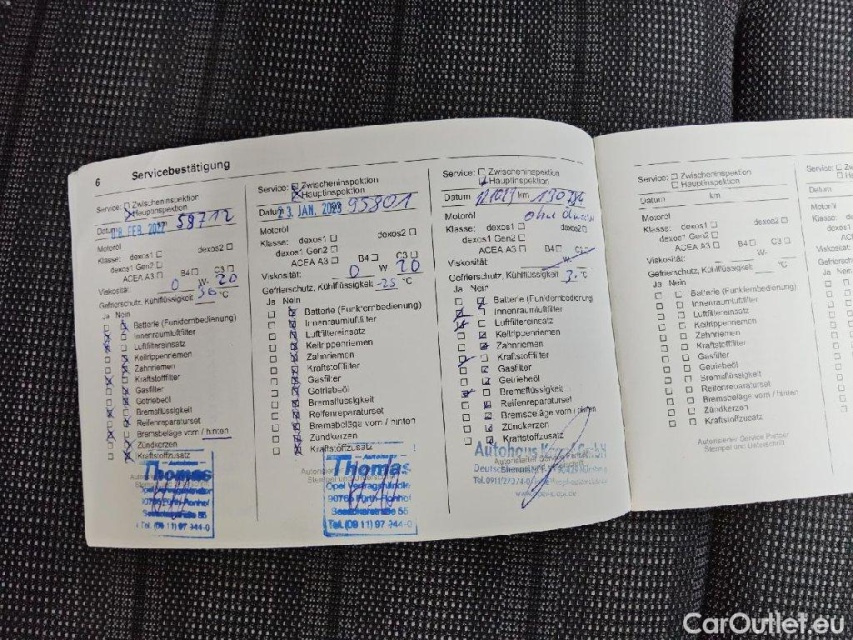 6 Servicebestätigung
Service: Zwischeninspektion
Hauptinspektion
Datum 08. FEB. 2022 58712
Motoröl
Klasse: dexos1 dexos2
dexos1 Gen2
ACEA A3 B4 C3
Viskosität: 0 W- 20
Gefrierschutz, Kühlflüssigkeit °C
Ja Nein
Batterie (Funkfernbedienung)
Innenraumluftfilter
Luftfiltereinsatz
Keilrippenriemen
Zahnriemen
Kraftstofffilter
Gasfilter
Getriebeöl
Bremsflüssigkeit
Reifenreparaturset
Bremsbeläge vorn / hinten
Zündkerzen
Kraftstoffzusatz
Autohaus
Thomas
Opel
90765 Fürth-Ronhof
Tel. (09 11) 97 944-0
Service: Zwischeninspektion
Hauptinspektion
Datum 23. JAN. 2023 95801
Motoröl
Klasse: dexos1 dexos2
dexos1 Gen2
ACEA A3 B4 C3
Viskosität: 0 W 20
Gefrierschutz, Kühlflüssigkeit -25 °C
Ja Nein
Batterie (Funkfernbedienung)
Innenraumluftfilter
Luftfiltereinsatz
Keilrippenriemen
Zahnriemen
Kraftstofffilter
Gasfilter
Getriebeöl
Bremsflüssigkeit
Reifenreparaturset
Bremsbeläge vorn / hinten
Zündkerzen
Kraftstoffzusatz
Thomas
Opel Vertragshändler
90765 Fürth-Ronhof
Tel. (09 11) 97 944-0
Service: Zwischeninspektion
Hauptinspektion
Datum km
Motoröl ohne
Klasse: dexos1 dexos2
dexos1 Gen2
ACEA A3 B4 C3
Viskosität: W
Gefrierschutz, Kühlflüssigkeit °C
Ja Nein
Batterie (Funkfernbedienung)
Innenraumluftfilter
Luftfiltereinsatz
Keilrippenriemen
Zahnriemen
Kraftstofffilter
Gasfilter
Getriebeöl
Bremsflüssigkeit
Reifenreparaturset
Bremsbeläge vorn / hinten
Zündkerzen
Kraftstoffzusatz
Autohaus GmbH
Service: Zwischeninspektion
Hauptinspektion
Datum km
Motoröl
Klasse: dexos1 dexos2
dexos1 Gen2
ACEA A3 B4 C3
Viskosität: W-
Gefrierschutz, Kühlflüssigkeit °C
Ja Nein
Batterie (Funkfernbedienung)
Innenraumluftfilter
Luftfiltereinsatz
Keilrippenriemen
Zahnriemen
Kraftstofffilter
Gasfilter
Getriebeöl
Bremsflüssigkeit
Reifenreparaturset
Bremsbeläge vorn / hinten
Zündkerzen
Kraftstoffzusatz
Autorisierter Service Partner
Stempel und Unterschrift
Service:
Datum
Motoröl
Klasse:
Viskosität:
Gefrierschutz
Ja Nein
CarOutlet.eu